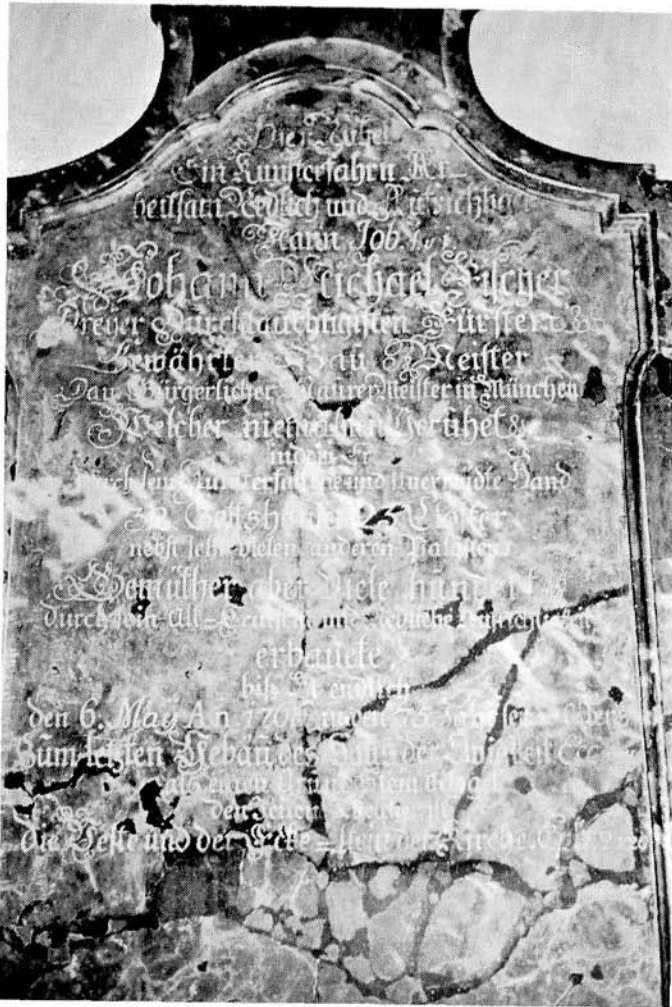 Hier Ruhet
Ein Kunsterfahrn Ar-
beithsam Redlich und Aufrichtiger
Mann Job. 1. v. 1.
Johann Michael Fischer
Dreyer Durchlauchtigisten Fürsten &
Bewährter Bau Meister
Dan Bürgerlicher Maurer Meister in München
Welcher niemahlen Geruhet &
indem Er
durch sein Kunsterfahrne und Unermüdte Hand
32 Gottshäuser 23 Clöster
nebst sehr vielen anderen Palästen
Gemüther aber Viele hundert
durch sein Alt-Deutsche und Redliche Aufrichtigkeit
erbauete,
biß Er endlich
den 6. May An 1766 in den 75. Jahr seines Alters
Zum letzten Gebäu des Haus der Ewigkeit &c
als einen Grund Stein
die Veste und der Ecke-stein der Kirche.